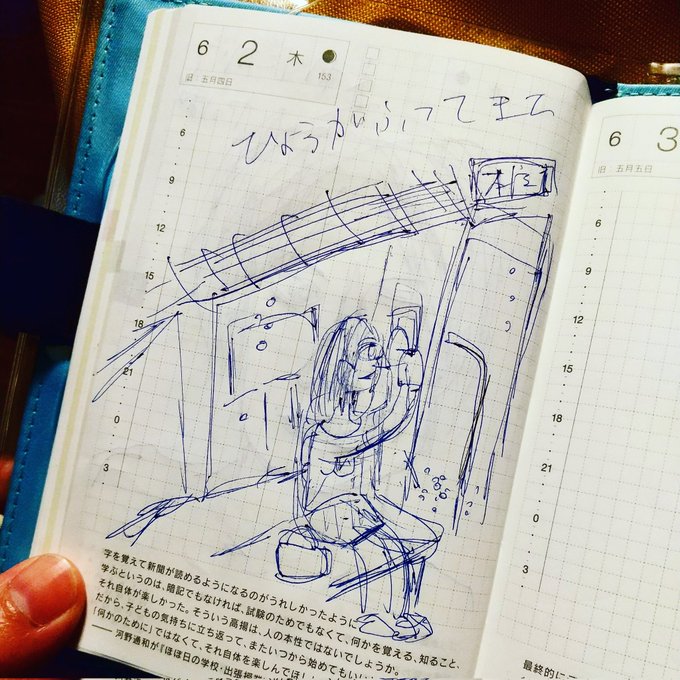 6 2 木
153
旧:五月四日
ひょうがふってきた
6
9
12
15
18
21
0
3
字を覚えて新聞が読めるようになるのがうれしかったように
学ぶというのは、暗記でもなければ、試験のためでもなくて、何かを覚える、知ること、
それ自体が楽しかった。そういう高揚は、人の本性ではないでしょうか。
だから、子どもの気持ちに立ち返って、またいつから始めてもいい
「何かのために」ではなくて、それ自体を楽しんでほし
——河野通和が『ほぼ日の学校・出張授業
6 3
旧:五月五日
6
9
12
15
18
21
0
3
最終的にこ